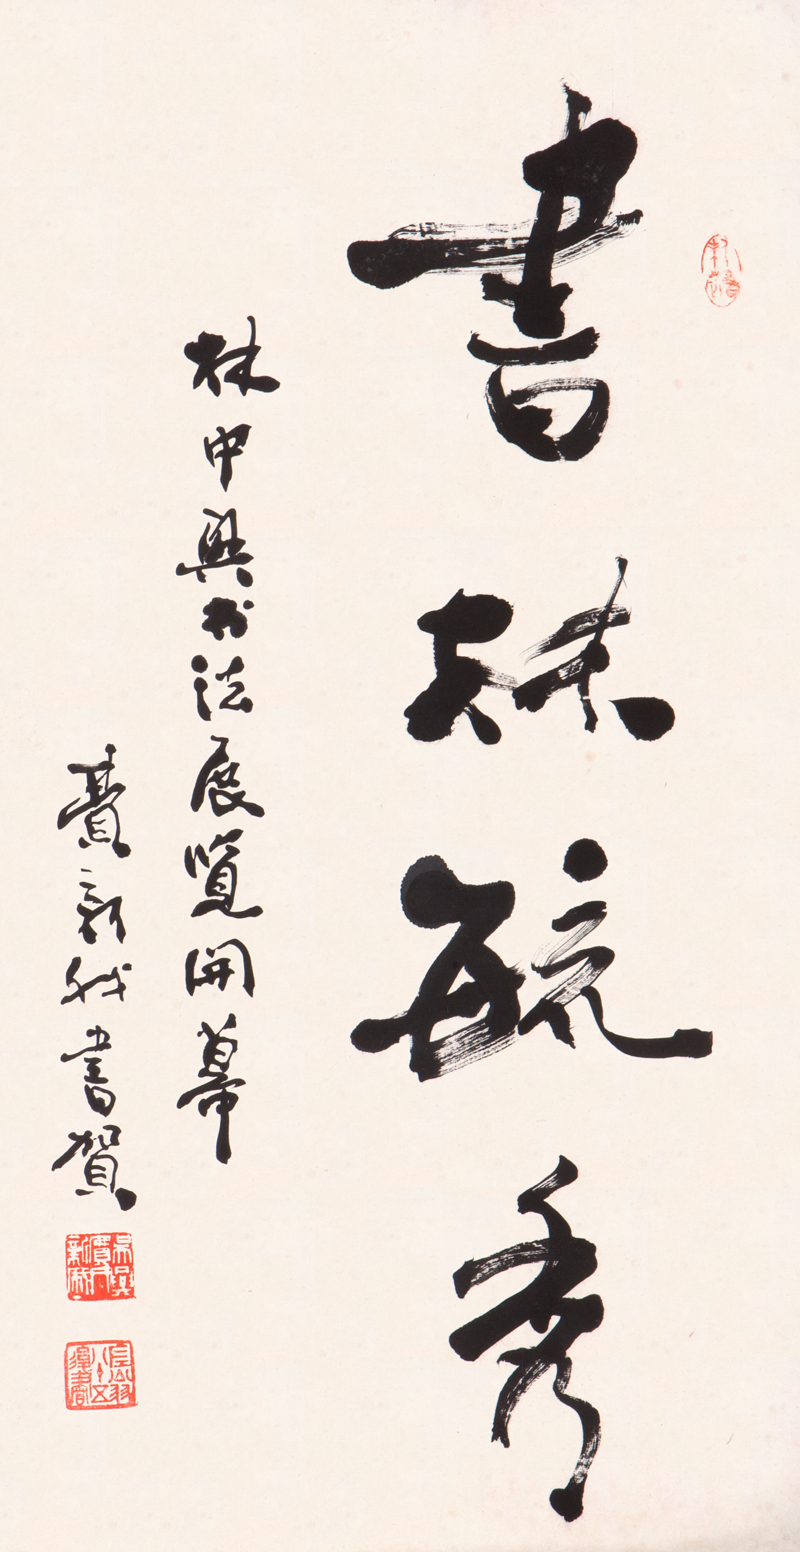 書林毓秀
林中興书法展覽開幕
費新我書賀